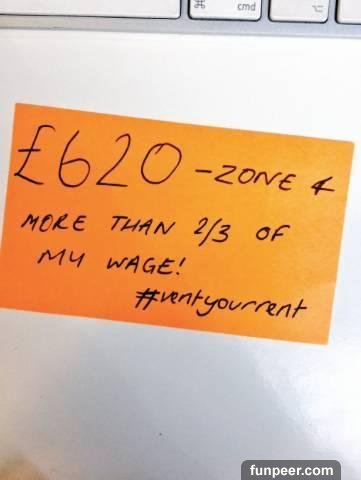 ⌘ cmd ⌥
£620 - ZONE 4
MORE THAN 2/3 OF
MY WAGE!
#ventyourrent
funpeer.com